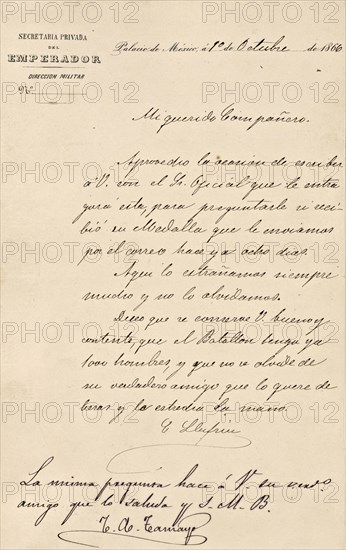 SECRETARIA PRIVADA
DEL
EMPERADOR
DIRECCION MILITAR
Nº
Palacio de México, á 1º de Octubre de 1866
Mi querido Compañero.
Aprovecho la ocasion de escribir
á V. con el Sr. Oficial que le entre
gará esta, para preguntarle si reci
bió su Medalla que le enviamos
por el correo hace ya ocho dias.
Aqui lo estrañamos siempre
mucho y no lo olvidamos.
Deseo que se conserve V. bueno y
contento, que el Batallon tenga ya
1000 hombres, y que no se olvide de
su verdadero amigo que lo quere de
beras y le estrecha la mano.
La misma pregunta hace á V. su verdo
amigo que lo saluda y S. M. B.
PHOTO 12
PHOTO 12
PHOTO 12
PHOTO 12
PHOTO 12
PHOTO 12